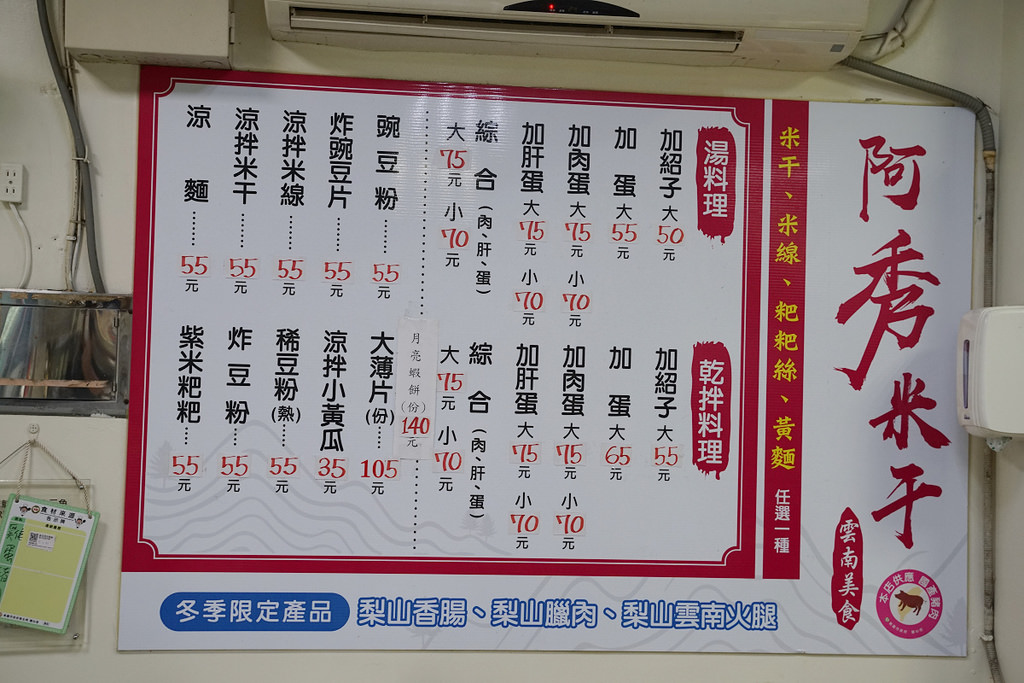 阿秀米干
雲南美食
本店供應 國產豬肉
米干、米線、粑粑絲、黃麵 任選一種
湯料理
加紹子 大50元
加蛋 大55元
加肉蛋 大75元 小70元
加肝蛋 大75元 小70元
綜合(肉、肝、蛋)
大75元 小70元
乾拌料理
加紹子 大55元
加蛋 大65元
加肉蛋 大75元 小70元
加肝蛋 大75元 小70元
綜合(肉、肝、蛋)
大75元 小70元
月亮蝦餅(份)140元
豌豆粉……55元
炸豌豆片……55元
涼拌米線……55元
涼拌米干……55元
涼麵……55元
大薄片(份)……105元
涼拌小黃瓜 35元
稀豆粉(熱)……55元
炸豆粉……55元
紫米粑粑……55元
冬季限定產品 梨山香腸、梨山臘肉、梨山雲南火腿
食材來源